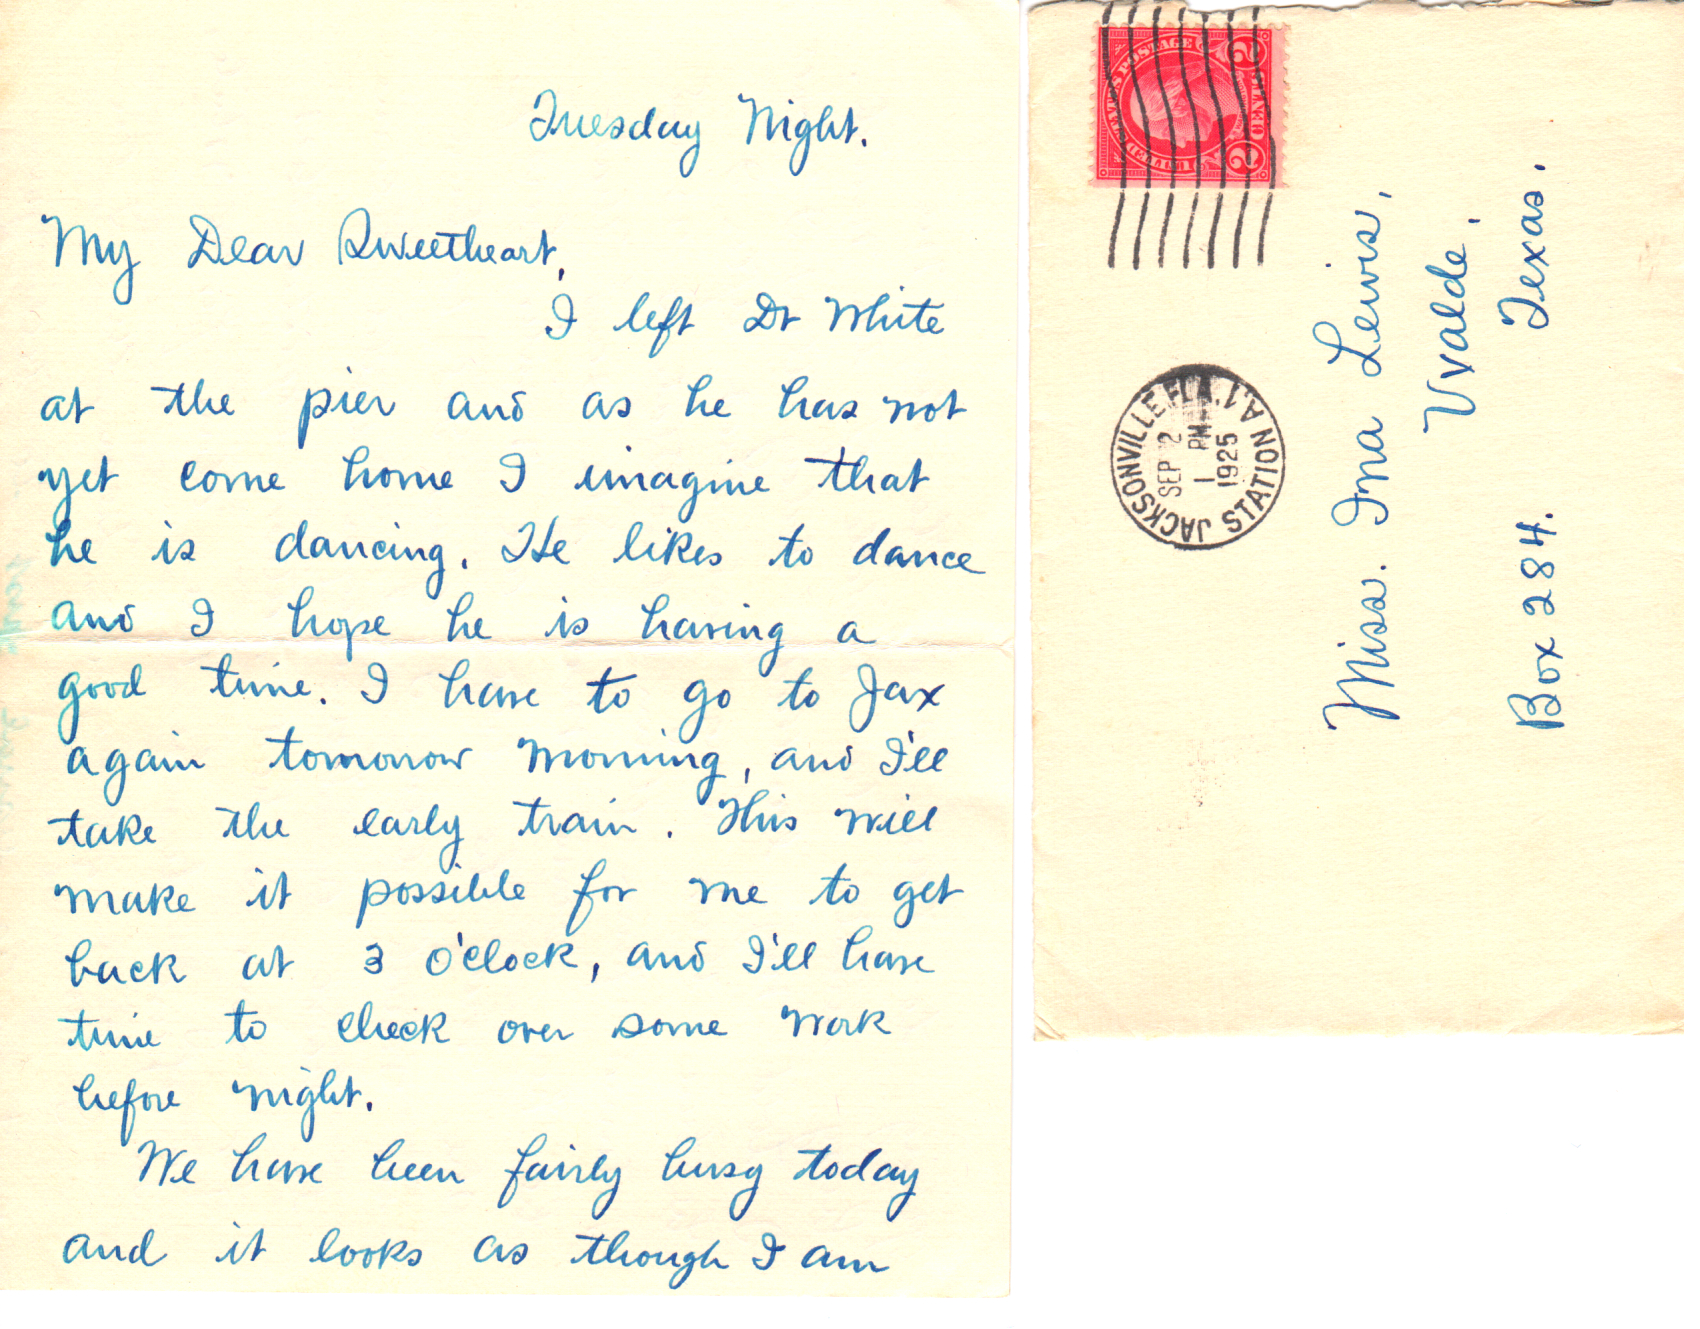 Tuesday Night.
My Dear Sweetheart,
I left Dr White
at the pier and as he has not
yet come home I imagine that
he is dancing. He likes to dance
and I hope he is having a
good time. I have to go to Jax
again tomorrow morning, and I'll
take the early train. This will
make it possible for me to get
back at 3 o'clock, and I'll have
time to check over some work
before night.
We have been fairly busy today
and it looks as though I am
2 CENTS 2
JACKSONVILLE FLA.
STATION A.1
SEP 2
1 PM
1925
Miss. Ima Lewis,
Uvalde,
Box 284. Texas.